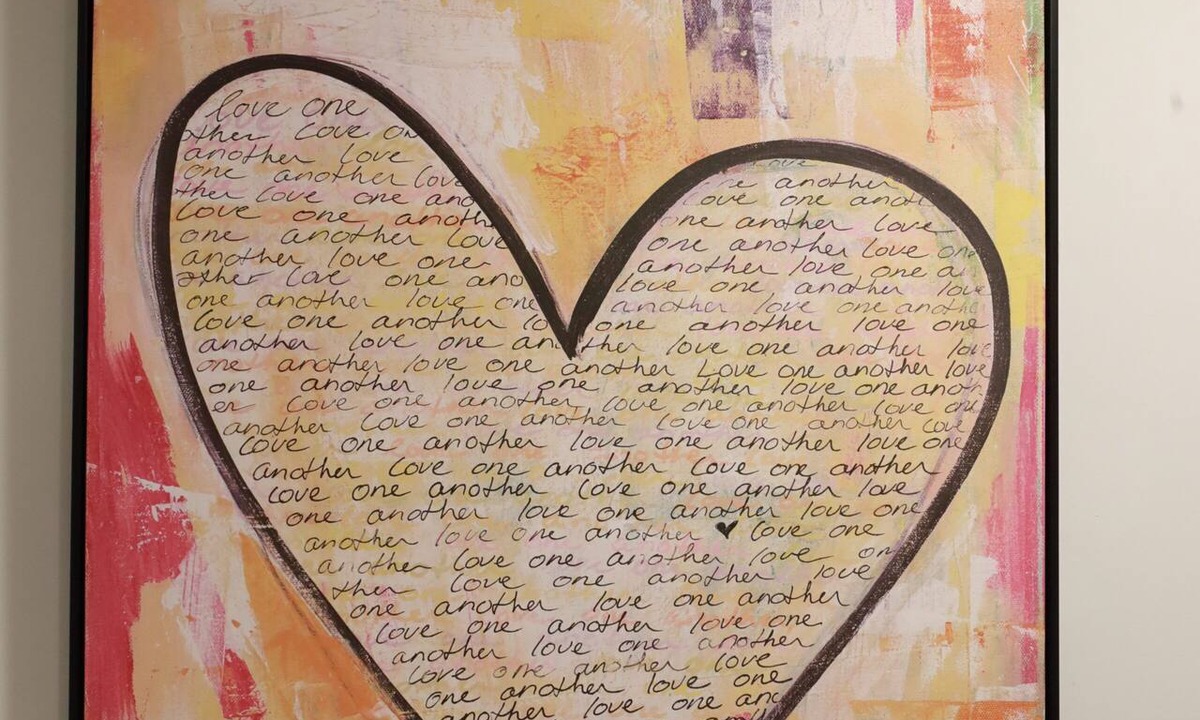 love one
other love on
another love
one another love
ther love one ano
love one anoth
one another love
another love one
other love one ano
one another love one
love one another lo
another love one an
love
ne another
love one anot
one another love
one another love one
another love one an
love one another love
another love one anothe
one another love one
ther love one another love
one another love one another Love one another love
one another love one another love one anoth
er love one another love one another love one
another love one another love one another love
love one another love one another love one
another love one another love one another
love one another love one another love
one another love one another love one
another love one another ♥ love one
another love one another love on
ther love one another love
one another love one another
love one another love one
another love one another
love one another love
one another love one
another love one and